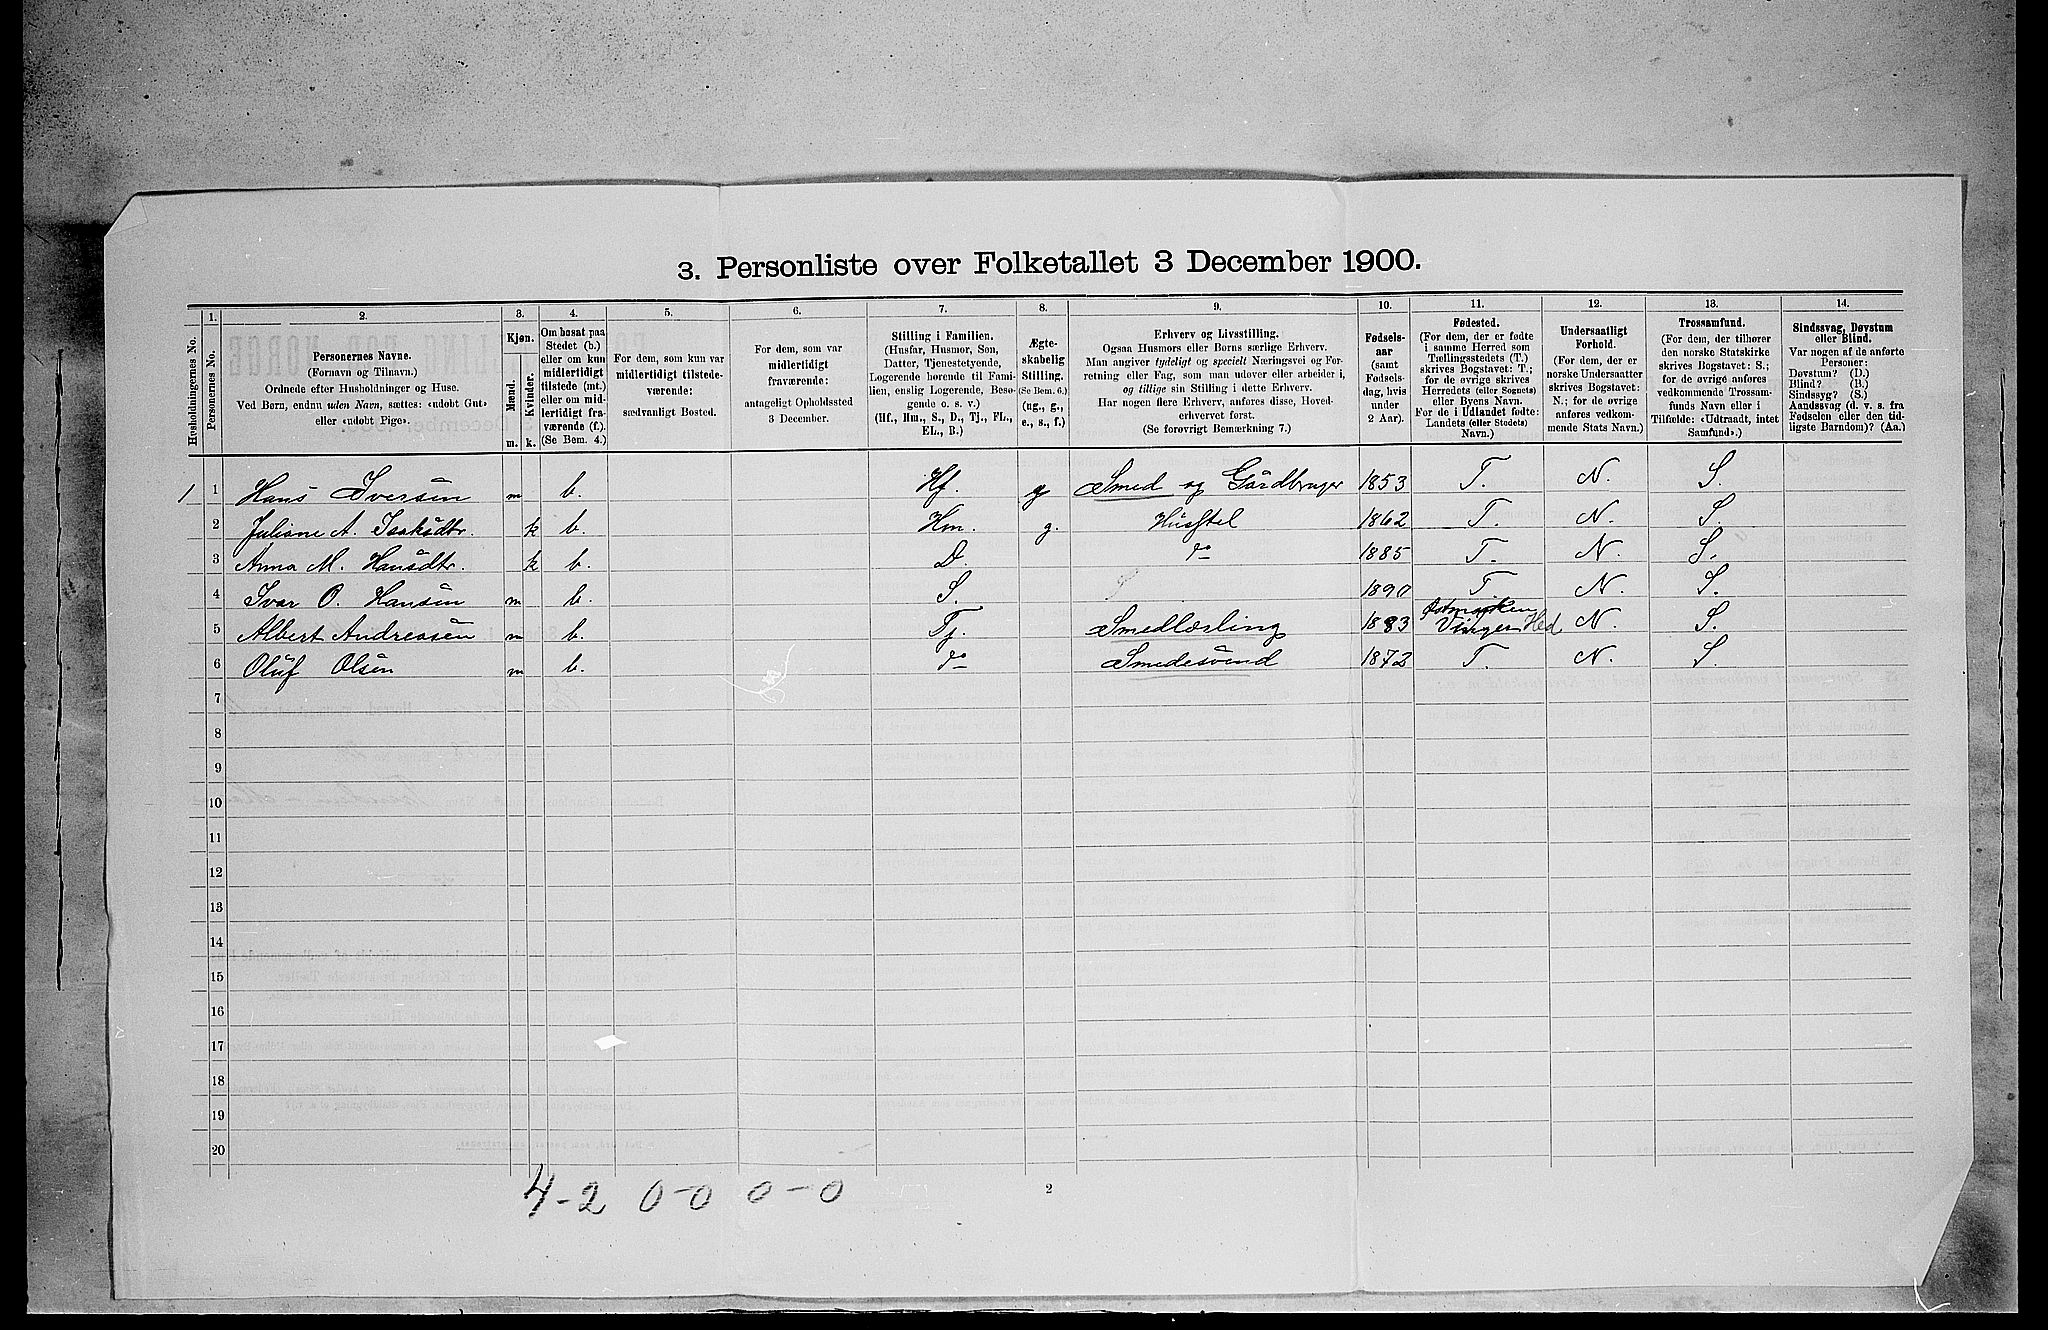 3. Personliste over Folketallet 3 December 1900.
Husholdningernes No.
1. Personernes No.
2. Personernes Navne.
(Fornavn og Tilnavn.)
Ordnede efter Husholdninger og Huse.
Ved Børn, endnu uden Navn, sættes: «udøbt Gut»
eller «udøbt Pige».
3. Kjøn.
Mænd. m.
Kvinder. k.
4. Om bosat paa
Stedet (b.)
eller om kun
midlertidigt
tilstede (mt.)
eller om mid-
lertidigt fra-
værende (f.)
(Se Bem. 4.)
5. For dem, som kun var
midlertidigt tilstede-
værende:
sædvanligt Bosted.
6. For dem, som var
midlertidigt
fraværende:
antageligt Opholdssted
3 December.
7. Stilling i Familien.
(Husfar, Husmor, Søn,
Datter, Tjenestetyende,
Logerende hørende til Fami-
lien, enslig Logerende, Besø-
gende o. s. v.)
(Hf., Hm., S., D., Tj., FL.,
EL., B.)
8. Ægte-
skabelig
Stilling.
(Se Bem. 6.)
(ug., g.,
e., s., f.)
9. Erhverv og Livsstilling.
Ogsaa Husmors eller Børns særlige Erhverv.
Man angiver tydeligt og specielt Næringsvei og For-
retning eller Fag, som man udøver eller arbeider i,
og tillige sin Stilling i dette Erhverv.
Har nogen flere Erhverv, anføres disse, Hoved-
erhvervet først.
(Se forøvrigt Bemærkning 7.)
10. Fødsels-
aar
(samt
Fødsels-
dag, hvis
under
2 Aar).
11. Fødested.
(For dem, der er fødte
i samme Herred som
Tællingsstedets (T.)
skrives Bogstavet: T.;
for de øvrige skrives
Herredets (eller Sognets)
eller Byens Navn.
For de i Udlandet fødte:
Landets (eller Stedets)
Navn.)
12. Undersaatligt
Forhold.
(For dem, der er
norske Undersaatter
skrives Bogstavet:
N.; for de øvrige
anføres vedkom-
mende Stats Navn.)
13. Trossamfund.
(For dem, der tilhører
den norske Statskirke
skrives Bogstavet: S.;
for de øvrige anføres
vedkommende Trossam-
funds Navn eller i
Tilfælde: «Udtraadt, intet
Samfund».)
14. Sindssvag, Døvstum
eller Blind.
Var nogen af de anførte
Personer:
Døvstum? (D.)
Blind? (B.)
Sindssyg? (S.)
Aandssvag (d. v. s. fra
Fødselen eller den tid-
ligste Barndom)? (Aa.)
1 1 Hans Iversen m b. Hf. g Smed og Gårdbruger 1853 T. N. S.
2 Juliane A. Isaksdtr. k b. Hm. g. Husstel 1862 T. N. S.
3 Anna M. Hansdtr. k b. D. do 1885 T. N. S.
4 Ivar O. Hansen m b. S. 1890 T. N. S.
5 Albert Andreasen m b. Tj. Smedlærling 1883 Østmarken Vinger Hed N. S.
6 Oluf Olsen m b. do Smedesvend 1872 T. N. S.
7
8
9
10
11
12
13
14
15
16
17
18
19
20
4-2 0-0 0-0
2